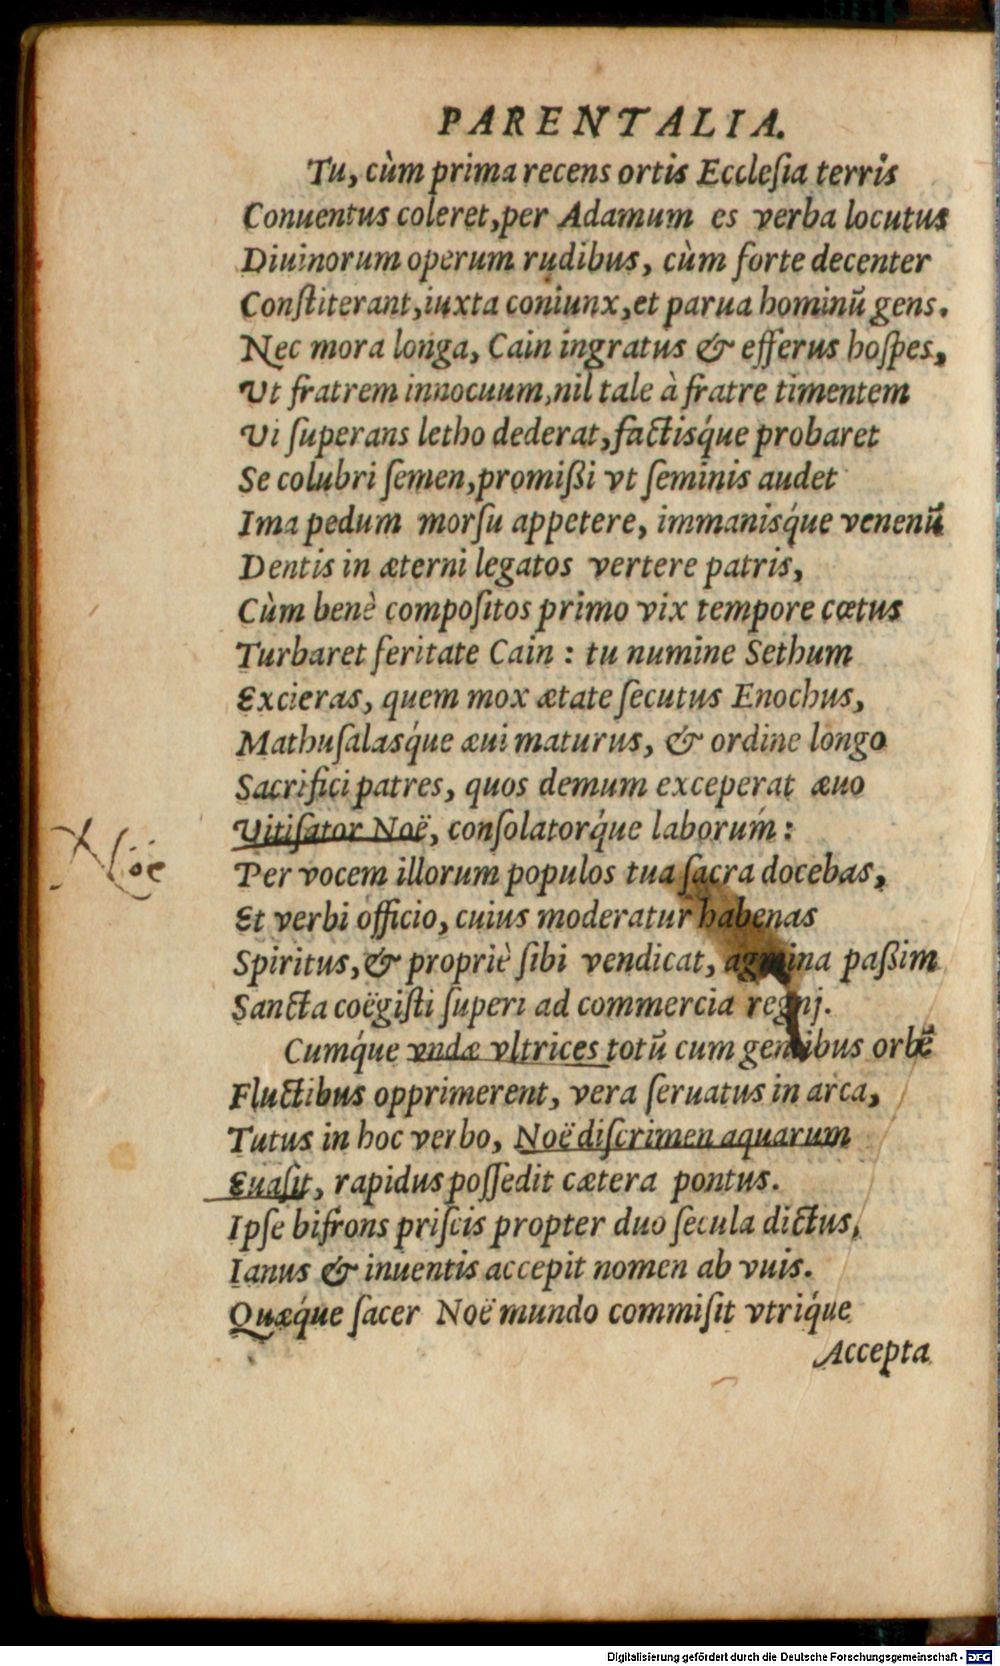 PARENTALIA.
Tu, cùm prima recens ortis Eccleſia terris
Conuentus coleret, per Adamum es verba locutus
Diuinorum operum rudibus, cùm forte decenter
Conſtiterant, iuxta coniunx, et parua hominū gens.
Nec mora longa, Cain ingratus & efferus hoſpes,
Vt fratrem innocuum, nil tale à fratre timentem
Vi ſuperans letho dederat, factisq́ue probaret
Se colubri ſemen, promißi vt ſeminis audet
Ima pedum morſu appetere, immanisq́ue venenū
Dentis in æterni legatos vertere patris,
Cùm benè compoſitos primo vix tempore cœtus
Turbaret feritate Cain : tu numine Sethum
Excieras, quem mox ætate ſecutus Enochus,
Mathuſalasq́ue æui maturus, & ordine longo
Sacrifici patres, quos demum exceperat æuo
Vitiſator Noë, conſolatorq́ue laborum :
Noë
Per vocem illorum populos tua ſacra docebas,
Et verbi officio, cuius moderatur habenas
Spiritus, & propriè ſibi vendicat, agmina paßim
Sancta coëgiſti ſuperi ad commercia regnj.
Cumq́ue vndæ vltrices totū cum gentibus orbē
Fluctibus opprimerent, vera ſeruatus in arca,
Tutus in hoc verbo, Noë diſcrimen aquarum
Euaſit, rapidus poſſedit cætera pontus.
Ipſe bifrons priſcis propter duo ſecula dictus,
Ianus & inuentis accepit nomen ab vuis.
Quæq́ue ſacer Noë mundo commiſit vtriq́ue
Accepta
Digitalisierung gefördert durch die Deutsche Forschungsgemeinschaft - DFG